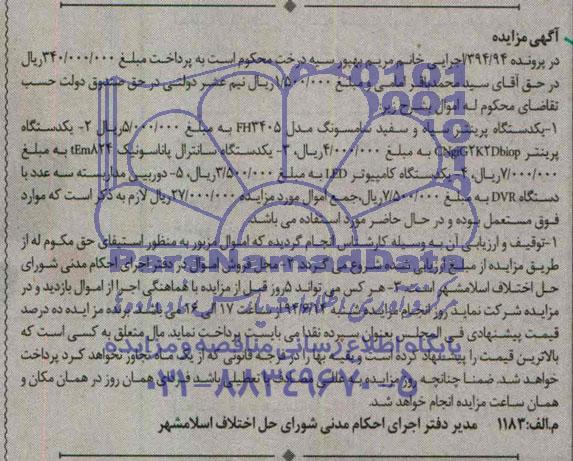 آگهی مزایده
در پرونده ۳۹۴/۹۴/اجرایی خانم مریم بهپور سیه درخت محکوم است به پرداخت مبلغ ۳۴۰/۰۰۰/۰۰۰ریال
در حق آقای سید محمدباقر امامی و مبلغ ۱/۵۰۰/۰۰۰ ریال نیم عشر دولتی در حق صندوق دولت حسب
تقاضای محکوم له اموال بشرح زیر
۱-یکدستگاه پرینتر سیاه و سفید سامسونگ مدل FH۳۴۰۵ به مبلغ ۵/۰۰۰/۰۰۰ریال ۲- یکدستگاه
پرینتر CNgiG۲K۲Dbiop به مبلغ ۴/۰۰۰/۰۰۰ریال، ۳- یکدستگاه سانترال پاناسونیک tEmA۲۴ به مبلغ
۷/۰۰۰/۰۰۰ریال، ۴- یکدستگاه کامپیوتر LED به مبلغ ۳/۵۰۰/۰۰۰ریال، ۵- دوربین مداربسته سه عدد با
دستگاه DVR به مبلغ ۷/۵۰۰/۰۰۰ریال،جمع اموال مورد مزایده ۲۷/۰۰۰/۰۰۰ریال لازم به ذکر است که موارد
فوق مستعمل بوده و در حال حاضر مورد استفاده می باشد.
۱-توقیف و ارزیابی آن به وسیله کارشناس انجام گردیده که اموال مزبور به منظور استیفای حق مکوم له از
طریق مزایده از مبلغ ارزیابی شده شروع می گردد ۲- محل فروش اموال در دفتر اجرای احکام مدنی شورای
حل اختلاف اسلامشهر است ۳- هر کس می تواند ۵روز قبل از مزایده با هماهنگی اجرا از اموال بازدید و در
مزایده شرکت نماید روز انجام مزایده شنبه ۹۴/۶/۱۴ از ساعت ۱۷ الی ۱۶ می باشد برنده مزایده ده درصد
قیمت پیشنهادی فی المجلس بعنوان سپرده نقدا می بایست پرداخت نماید مال متعلق به کسی است که
بالاترین قیمت را پیشنهاد کرده است و بقیه بها را در موعد قانونی که از یک ماه تجاوز نخواهد کرد پرداخت
خواهد شد. ضمنا چنانچه روز مزایده به عللی مصادف با تعطیلی باشد فردای همان روز در همان مکان و
همان ساعت مزایده انجام خواهد شد.
م.الف:۱۱۸۳ مدیر دفتر اجرای احکام مدنی شورای حل اختلاف اسلامشهر
ParsNamadData
پایگاه اطلاع رسانی مناقصه و مزایده
۰۲۱-۸۸۳۴۹۶۷۰-۵